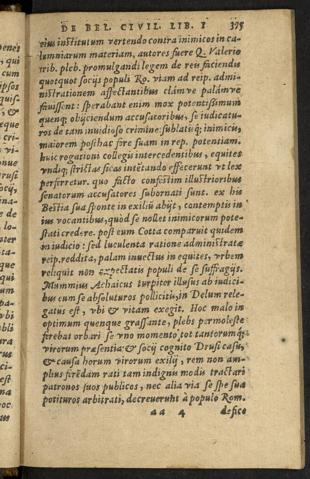 DE BEL. CIVIL. LIB. I 375
eius institutum vertendo contra inimicos in ca-
lumniarum materiam, autores fuere Q. Valerio
trib. plcb. promulgandi legem de reis faciendis
quotquot socijs populi Ro. viam ad reip. admi-
nistrationem affectantibus clàmve palàmve
favissent: sperabant enim mox potentissimum
quenq; obijciendum accusatoribus, se iudicatu-
ros de tam inuidioso crimine: sublatisq; inimicis,
maiorem posthac fore suam in rep. potentiam.
huic rogationi collegis intercedentibus, equites
vndiq; strictas sicas intètando effecerunt vt lex
perferretur. quo facto confestim illustrioribus
senatorum accusatores subornati sunt. ex his
Bestia sua sponte in exiliū abijt, contemptis in
ius vocantibus, quòd se nollet inimicorum pote-
stati credere. post eum Cotta comparuit quidem
in iudicio: sed luculenta ratione administratæ
reip. reddita, palam inuectus in equites, vrbem
reliquit non expectatis populi de se suffragijs.
Mummius Achaicus turpiter illusus ab iudici-
bus eum se absoluturos pollicitis, in Delum rele-
gatus est, vbi & vitam exegit. Hoc malo in
optimum quenque grassante, plebs permoleste
ferebat orbari se vno momento tot tantorumq;
virorum præsentia: & socij cognito Drusi casu,
& causa horum virorum exilij, rem non am-
plius ferēdam rati tam indignu modis tractari
patronos suos publicos, nec alia via se spe sua
potituros arbitrati, decreuerunt à populo Rom.
aa 4 defice